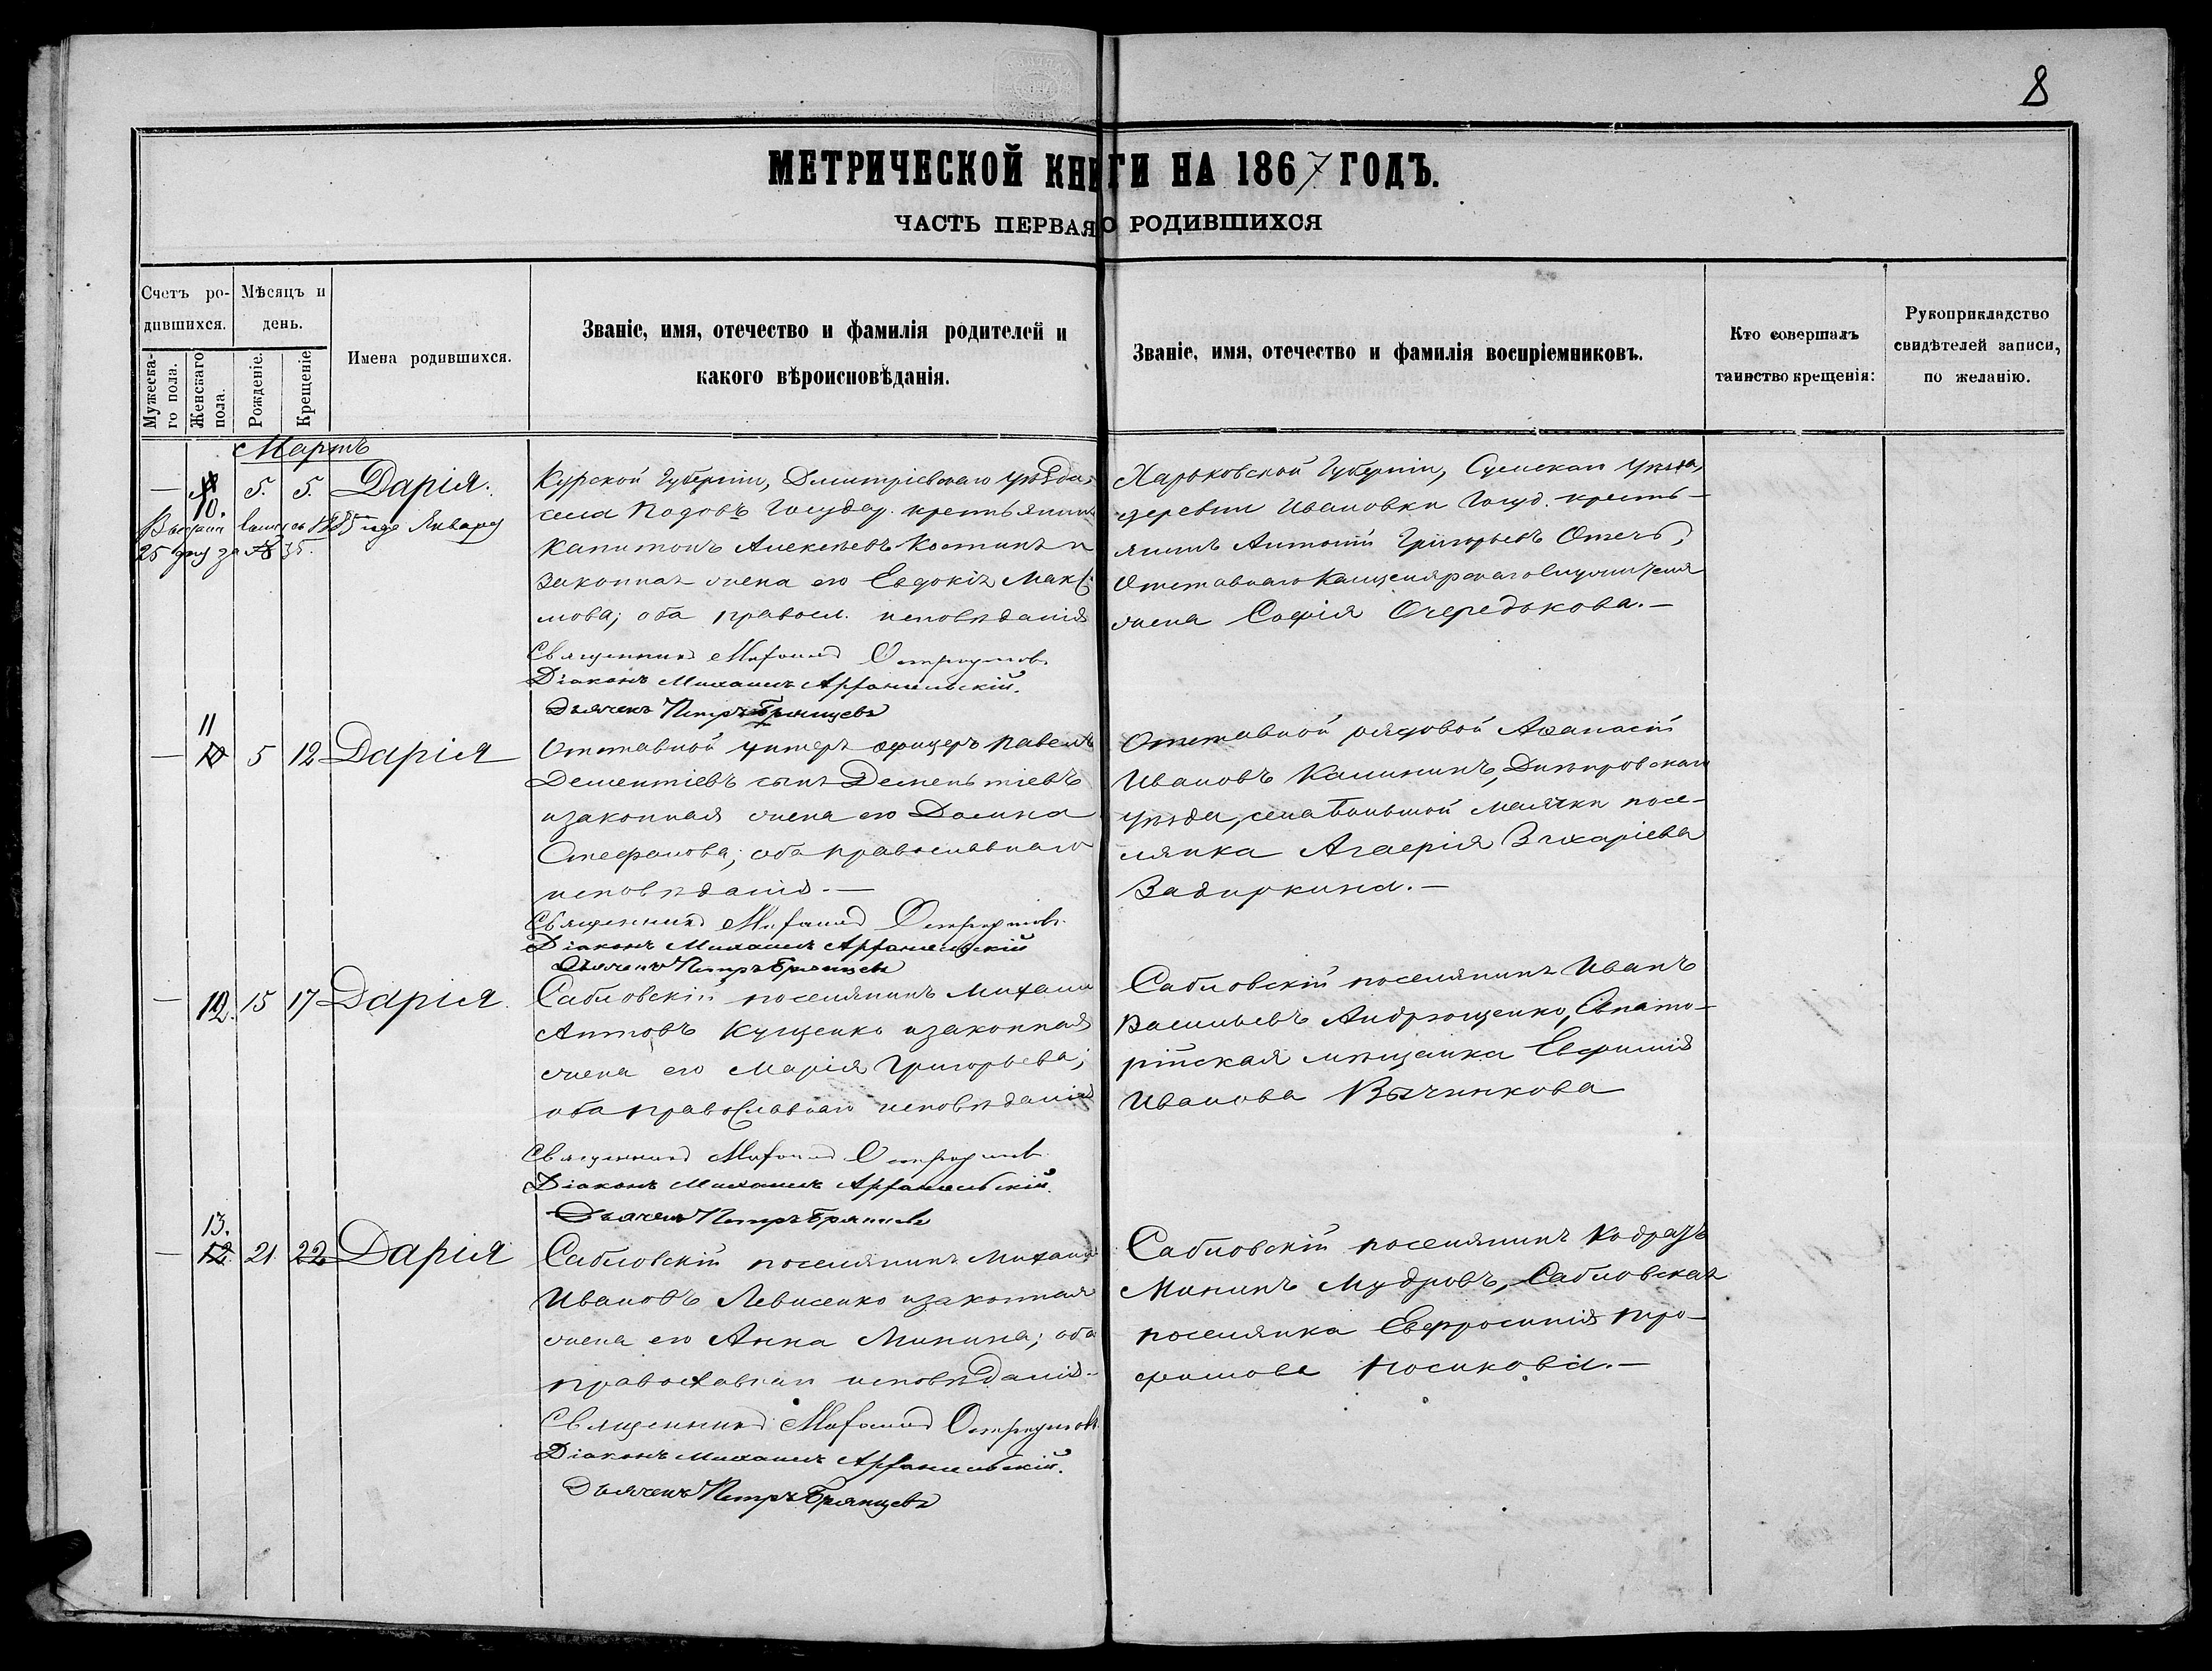 8
МЕТРИЧЕСКОЙ КНИГИ НА 1867 ГОДЪ.
ЧАСТЬ ПЕРВАЯ О РОДИВШИХСЯ
Счетъ родившихся.
Мужескаго пола.
Женскаго пола.
Мѣсяцъ и день.
Рожденіе.
Крещеніе.
Имена родившихся.
Званіе, имя, отечество и фамилія родителей и
какого вѣроисповѣданія.
Званіе, имя, отечество и фамилія воспріемниковъ.
Кто совершалъ
таинство крещенія:
Рукоприкладство
свидѣтелей записи,
по желанію.
Мартъ
— 10. 5. 5. Дарія.
1885 года Января
25 дня за № 35.
Курской Губерніи, Дмитріевскаго уѣзда,
села Кодовъ Государ. крестьянинъ
Капитонъ Алексѣевъ Костинъ и
законная жена его Евдокія Макси
мова; оба правосл. исповѣданія
Священникъ Остроумовъ
Діаконъ Михаилъ Архангельскій.
Дьячекъ Петръ Брянцевъ
Харьковской Губерніи, Сумскаго уѣзда,
деревни Ивановки Госуд. кресть-
янинъ Антоній Григорьевъ Отечъ,
Отставнаго Канцелярскаго Служителя
жена Софія Очередькова.—
— 11 5 12 Дарія
Отставной унтеръ офицеръ Павелъ
Дементіевъ сынъ Дементіевъ
и законная жена его Домна
Стефанова; оба православнаго
исповѣданія.—
Священникъ Остроумовъ
Діаконъ Михаилъ Архангельскій
Дьячекъ Петръ Брянцевъ
Отставной рядовой Аѳанасій
Ивановъ Калининъ, Днѣпровскаго
уѣзда, села Большой Маячки посе-
лянка Агаѳія Захаріева
Задиркина.—
— 12. 15 17 Дарія.
Сабловскій поселянинъ Михаилъ
Антовъ Кущенко и законная
жена его Марія Григорьева;
оба православнаго исповѣданія
Священникъ Остроумовъ
Діаконъ Михаилъ Архангельскій.
Дьячекъ Петръ Брянцевъ
Сабловскій поселянинъ Иванъ
Васильевъ Андрющенко, Евпато-
рійская мѣщанка Евфимія
Иванова Вычинкова
— 13. 21. 22 Дарія
Сабловскій поселянинъ Михаилъ
Ивановъ Левисенко и законная
жена его Анна Минина; оба
православнаго исповѣданія.—
Священникъ Остроумовъ
Діаконъ Михаилъ Архангельскій.
Дьячекъ Петръ Брянцевъ
Сабловскій поселянинъ Кодратъ
Мининъ Мудровъ, Сабловская
поселянка Евфросинія Тро-
фимова Носикова.—